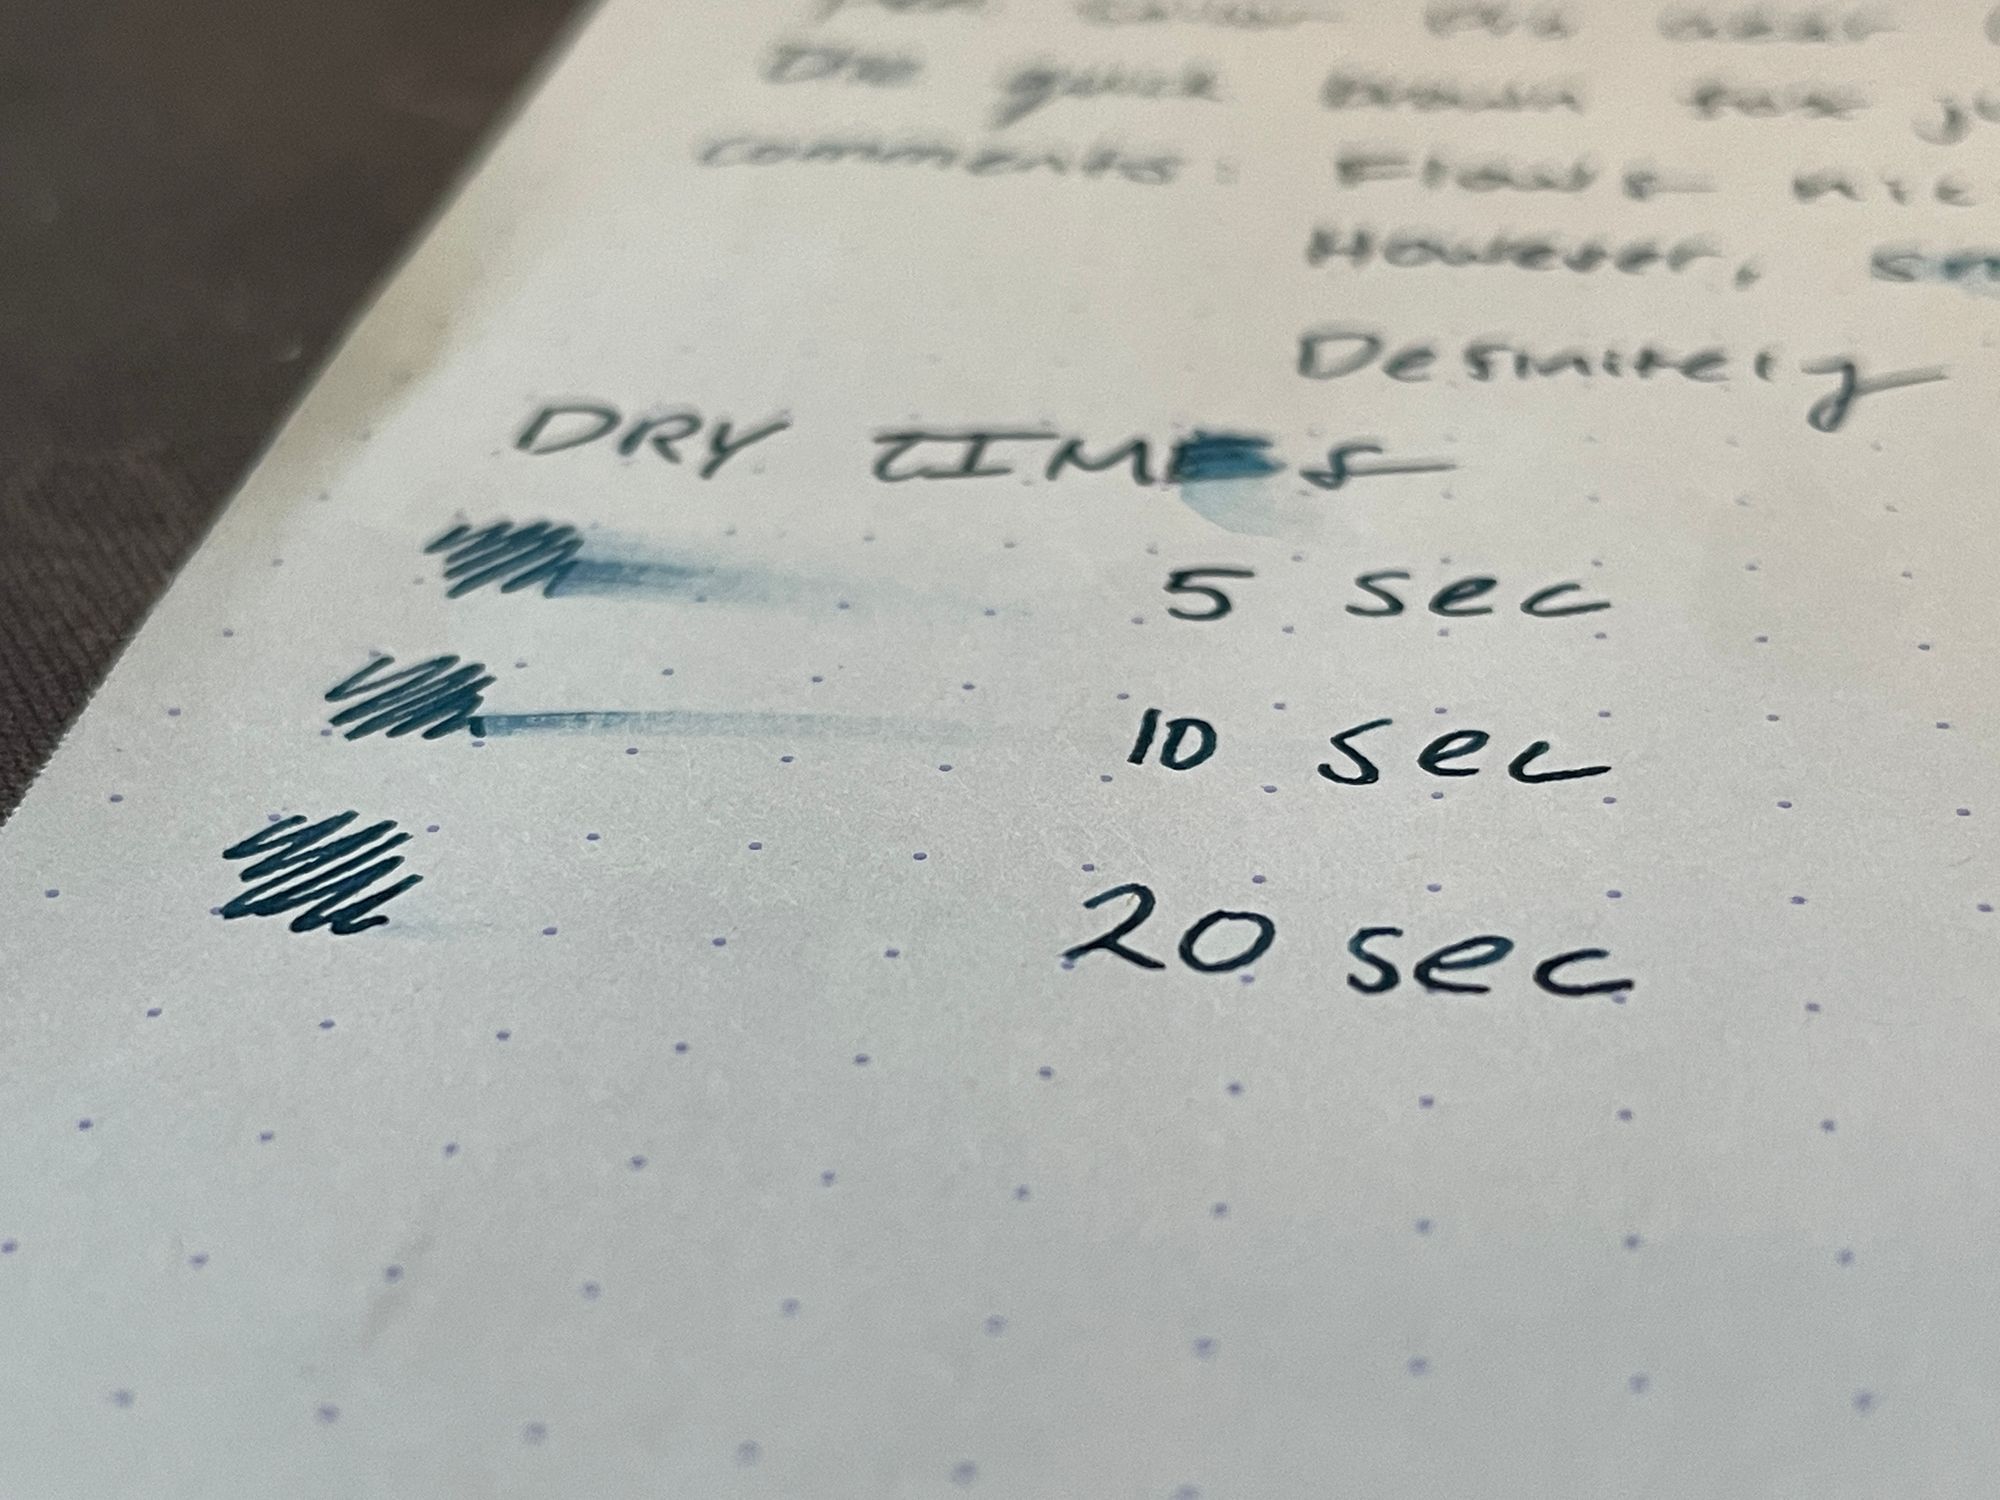 The quick brown fox
comments: Flow is nic
However,
Definitely
DRY TIMES
5 sec
10 sec
20 sec